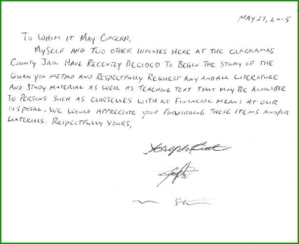 MAY 27, 2015
TO WHOM IT MAY CONCERN,
MYSELF AND TWO OTHER INMATES HERE AT THE CLACKAMAS
COUNTY JAIL HAVE RECENTLY DECIDED TO BEGIN THE STUDY OF THE
QUAN YIN METHOD AND RESPECTFULLY REQUEST ANY AND ALL LITERATURE
AND STUDY MATERIAL AS WELL AS TEACHING TEXT THAT MAY BE AVAILABLE
TO PERSONS SUCH AS OURSELVES WITH NO FINANCIAL MEANS AT OUR
DISPOSAL. WE WOULD APPRECIATE YOUR FORWARDING THESE ITEMS AND/OR
MATERIALS. RESPECTFULLY YOURS,